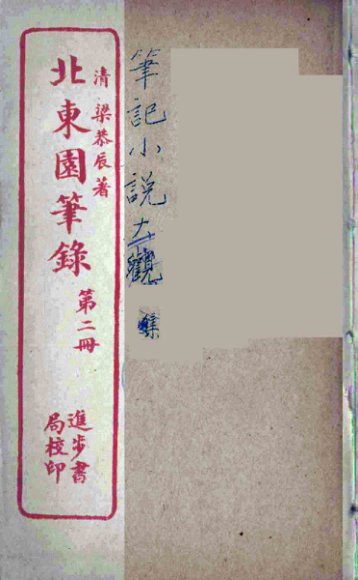 筆記小說大觀
清 梁恭辰著
北東園筆錄 第二冊
進步書
局校印